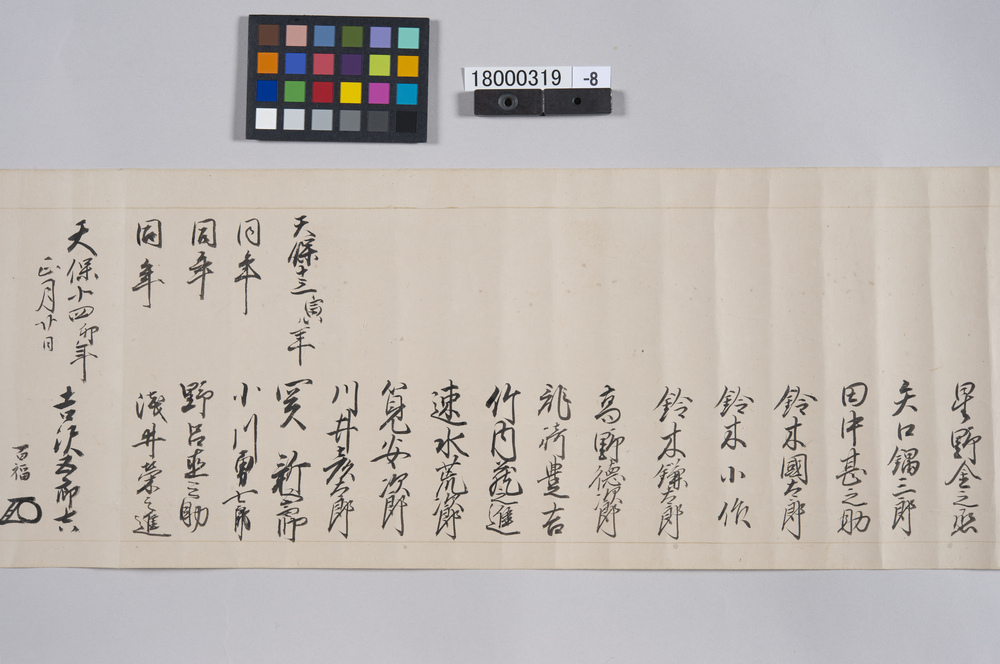 18000319 -8
星野金之丞
矢口錩三郎
田中甚之助
鈴木國太郎
鈴木小作
鈴木鎌太郎
高野德次郎
龍崎豊吉
竹内蔵之進
速水荒次郎
筧安次郎
川井彦太郎
天保十三寅年
関新之丞
同年
小川勇七郎
同年
野呂直之助
同年
淺井榮之進
天保十四卯年
正月廿日
吉沢
百福